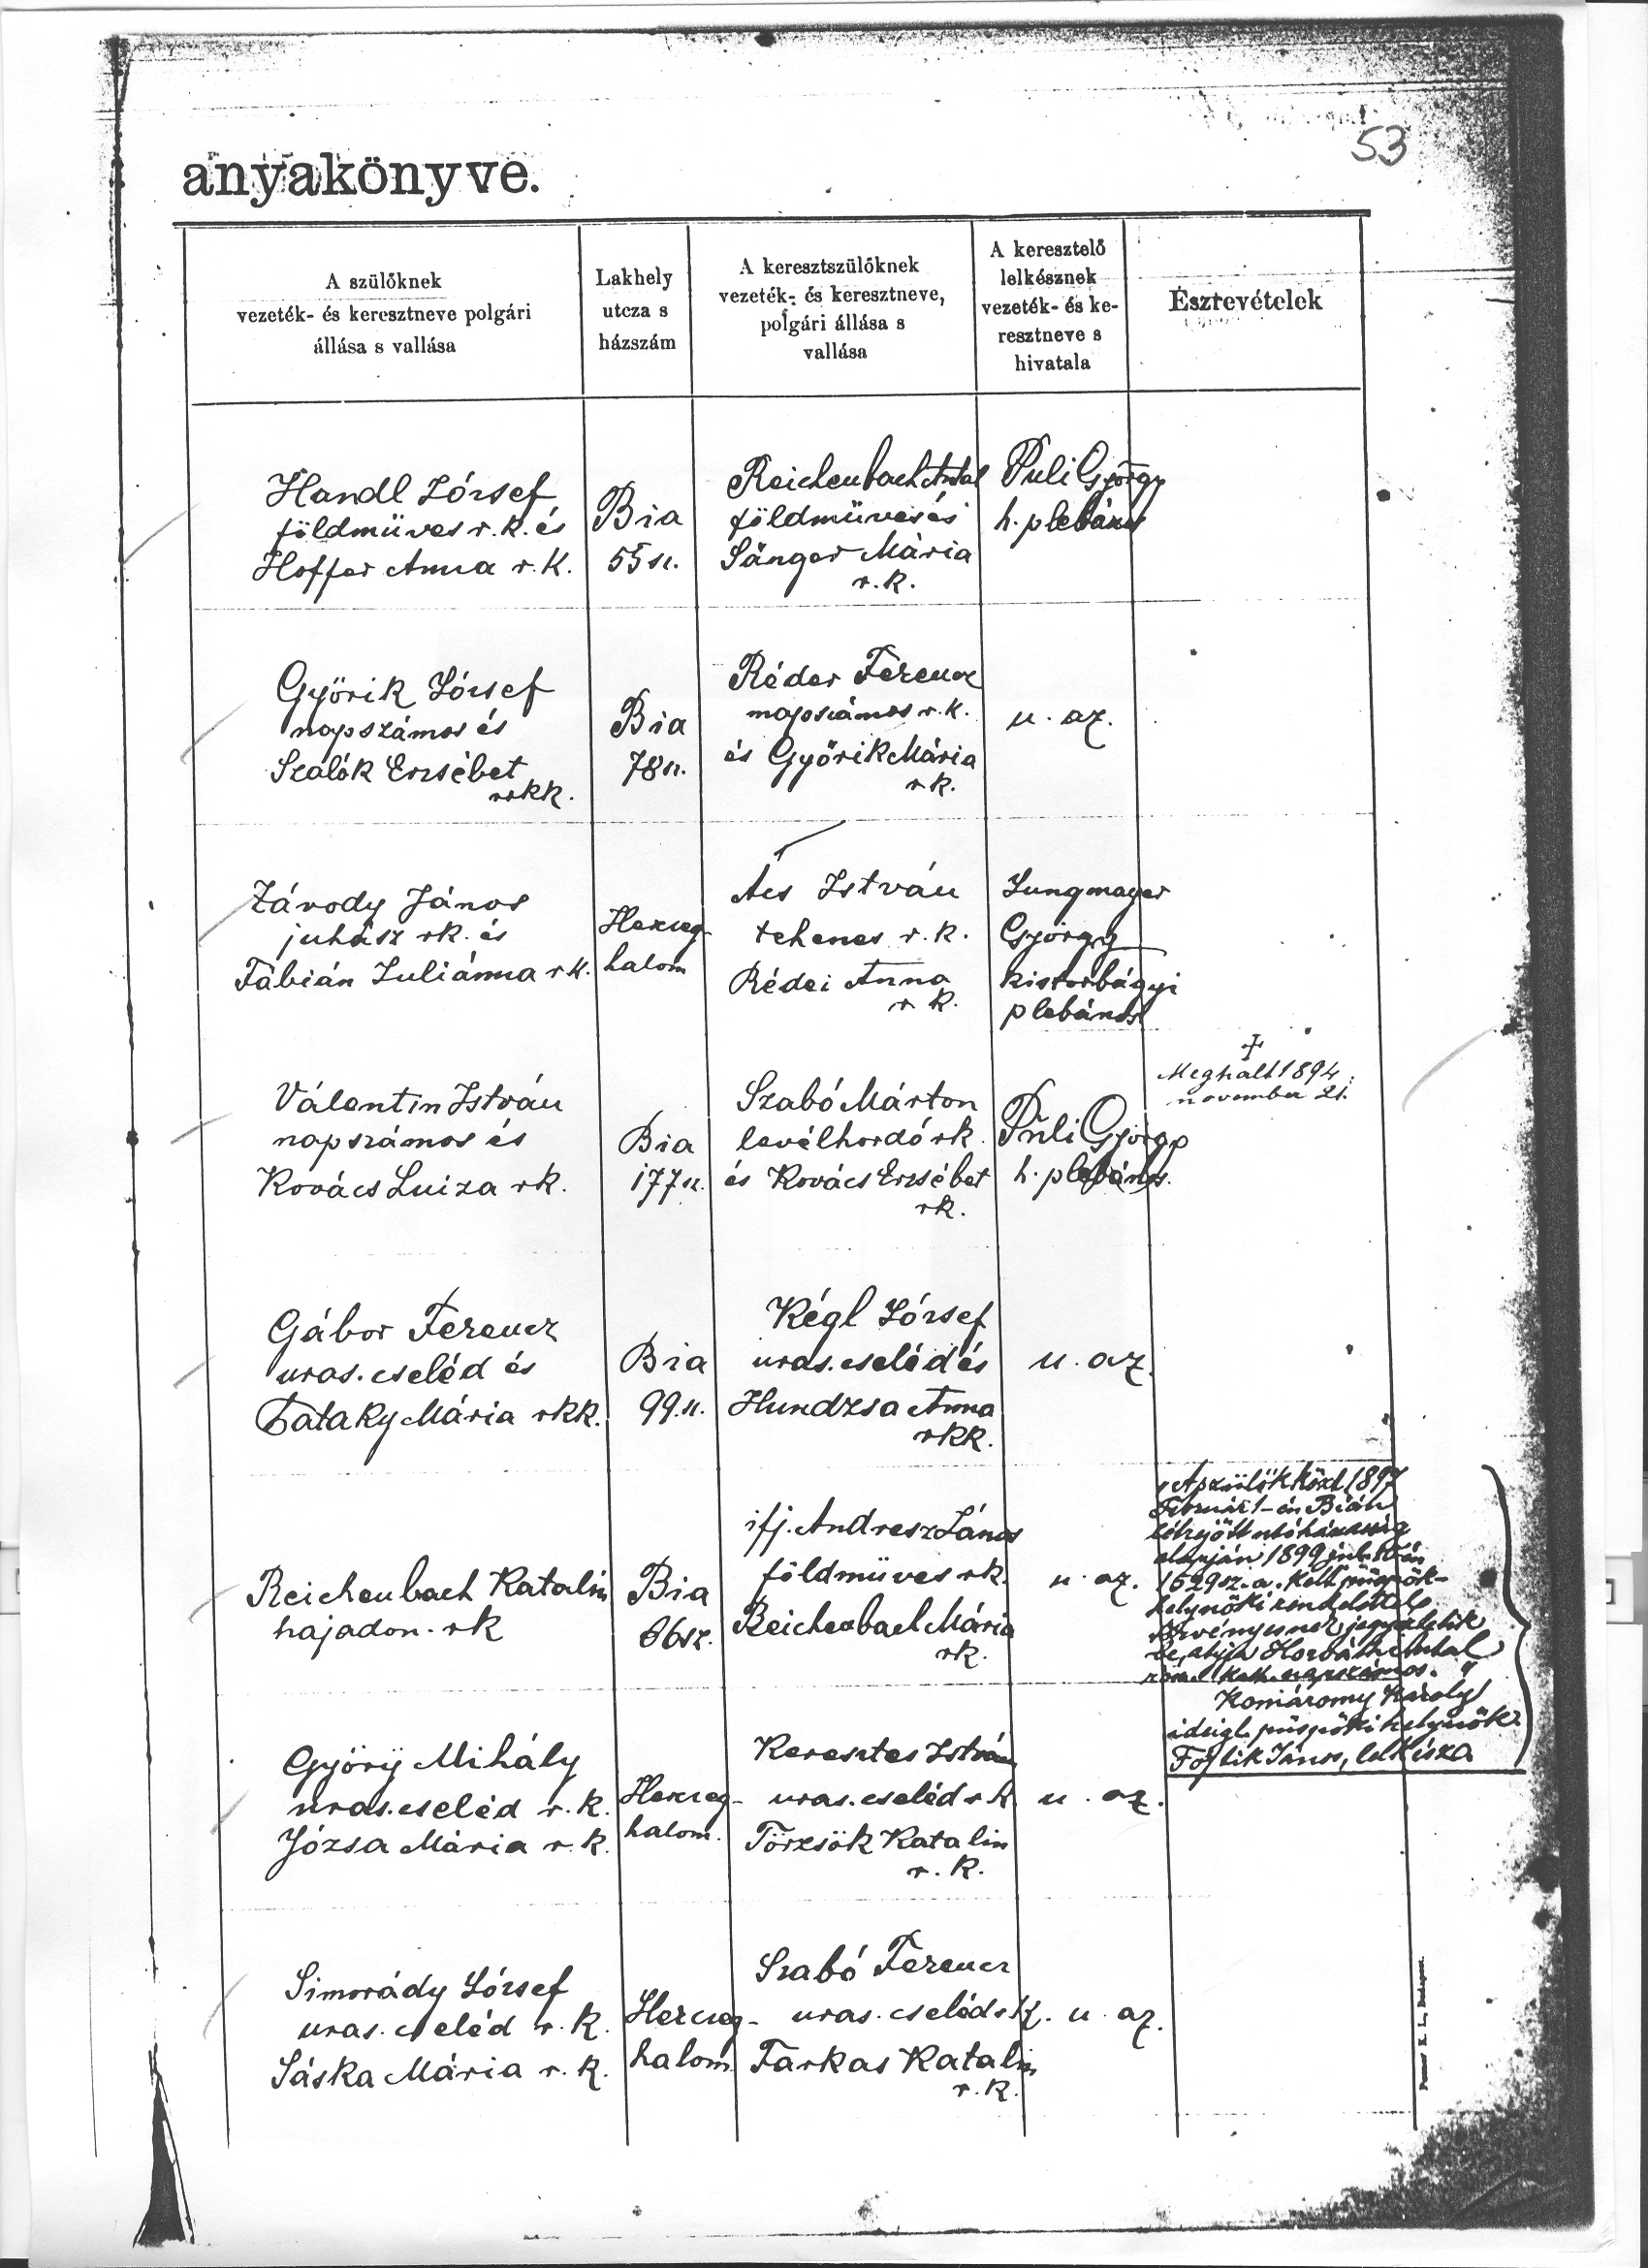 53
anyakönyve.
A szülőknek
vezeték- és keresztneve polgári
állása s vallása
Lakhely
utcza s
házszám
A keresztszülőknek
vezeték- és keresztneve,
polgári állása s
vallása
A keresztelő
lelkésznek
vezeték- és ke-
resztneve s
hivatala
Észrevételek
Handl József
földmüves r. k. és
Hoffer Anna r. k.
Bia
55 sz.
Reichenbach Antal
földmüves és
Sänger Mária
r. k.
Puli György
h. plebános
Györik József
napszámos és
Szalók Erzsébet
rkk.
Bia
78 sz.
Réder Ferencz
napszámos r. k.
és Győrik Mária
r k.
u. az.
Závody János
juhász rk. és
Fábián Juliánna r k.
Herczeg-
halom
Ács István
tehenes r. k.
Rédei Anna
r k.
Jungmayer
György
kistorbágyi
plebános
Válentin István
napszámos és
Kovács Luiza rk.
Bia
177 sz.
Szabó Márton
levélhordó rk.
és Kovács Erzsébet
rk.
Puli György
h. plebános.
†
Meghalt 1894
november 21.
Gábor Ferencz
uras. cseléd és
Tataky Mária rkk.
Bia
99 sz.
Kégl József
uras. cseléd és
Hundzsa Anna
rkk.
u. az.
Reichenbach Katalin
hajadon. rk
Bia
66 sz.
ifj. Andresz János
földmüves rk.
Reichenbach Mária
rk.
u. az.
A szülők közt 1897
Február 1-én Bián
létrejött utóházasság
alapján 1899
1629 sz. a. kelt püspök-
helynöki rendelettel
törvényesnek jegyeztetik
be, atyja Horváth Antal
róm. kath. napszámos."
Komáromy Károly
ideigl. püspöki helynök
János, lelkész
Györy Mihály
uras. cseléd r. k.
Józsa Mária r. k.
Herczeg-
halom.
Keresztes István
uras. cseléd r k
Törzsök Katalin
r. k.
u. az.
Simorády József
uras. cseléd r. k.
Sáska Mária r. k.
Herczeg-
halom
Szabó Ferencz
uras. cseléd r k.
Farkas Katalin
r. k.
u. az.